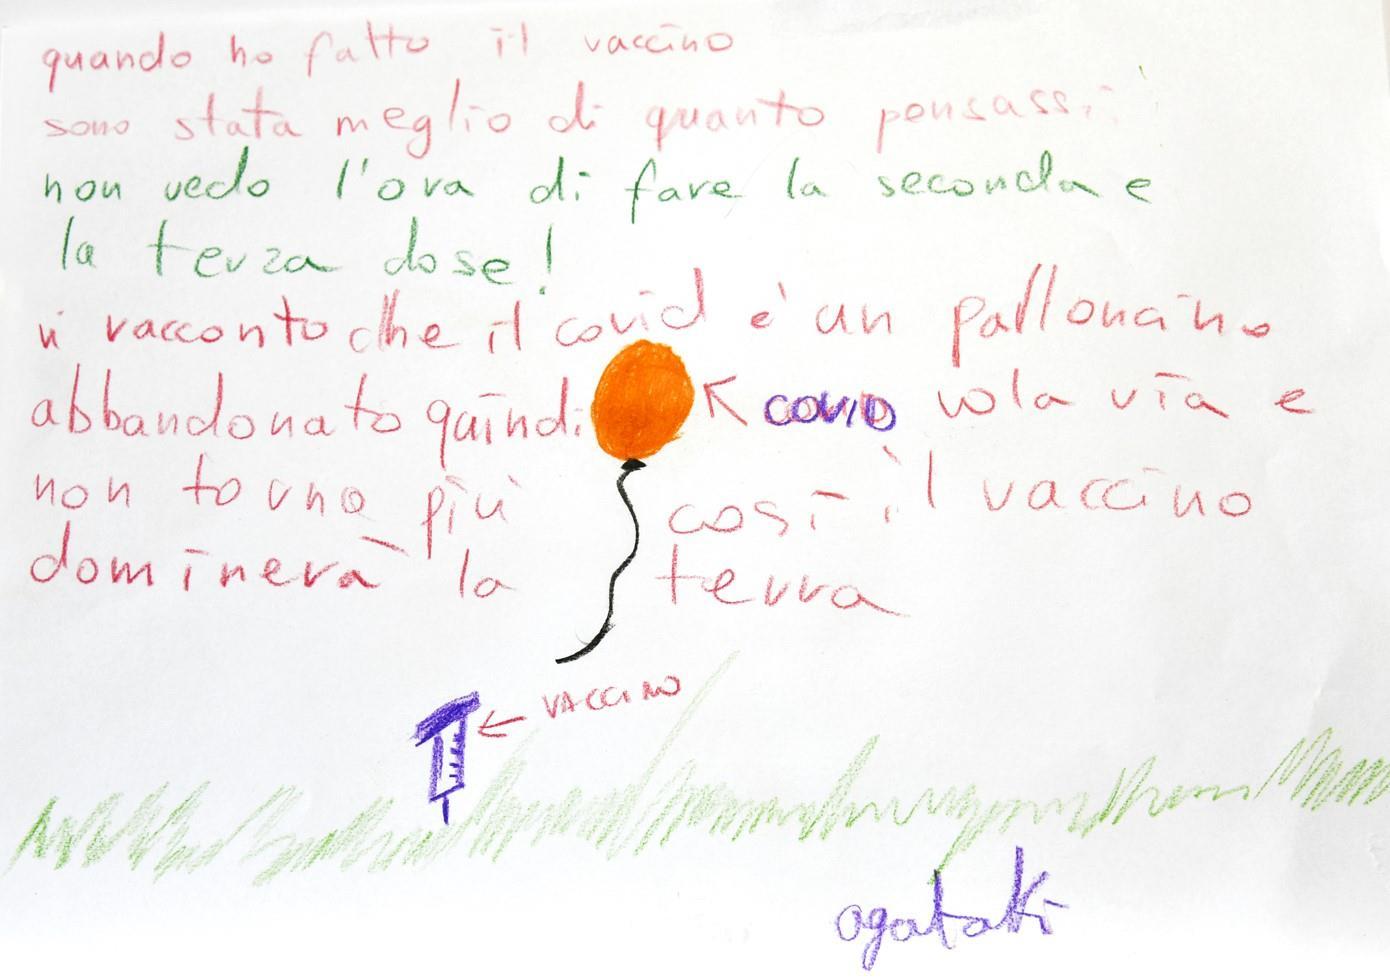 quando ho fatto il vaccino
sono stata meglio di quanto pensassi:
non vedo l'ora di fare la seconda e
la terza dose!
vi racconto che il covid è un palloncino
abbandonato quindi vola via e
↖ COVID
non torna più così il vaccino
dominerà la terra
← VACCINO
agataki